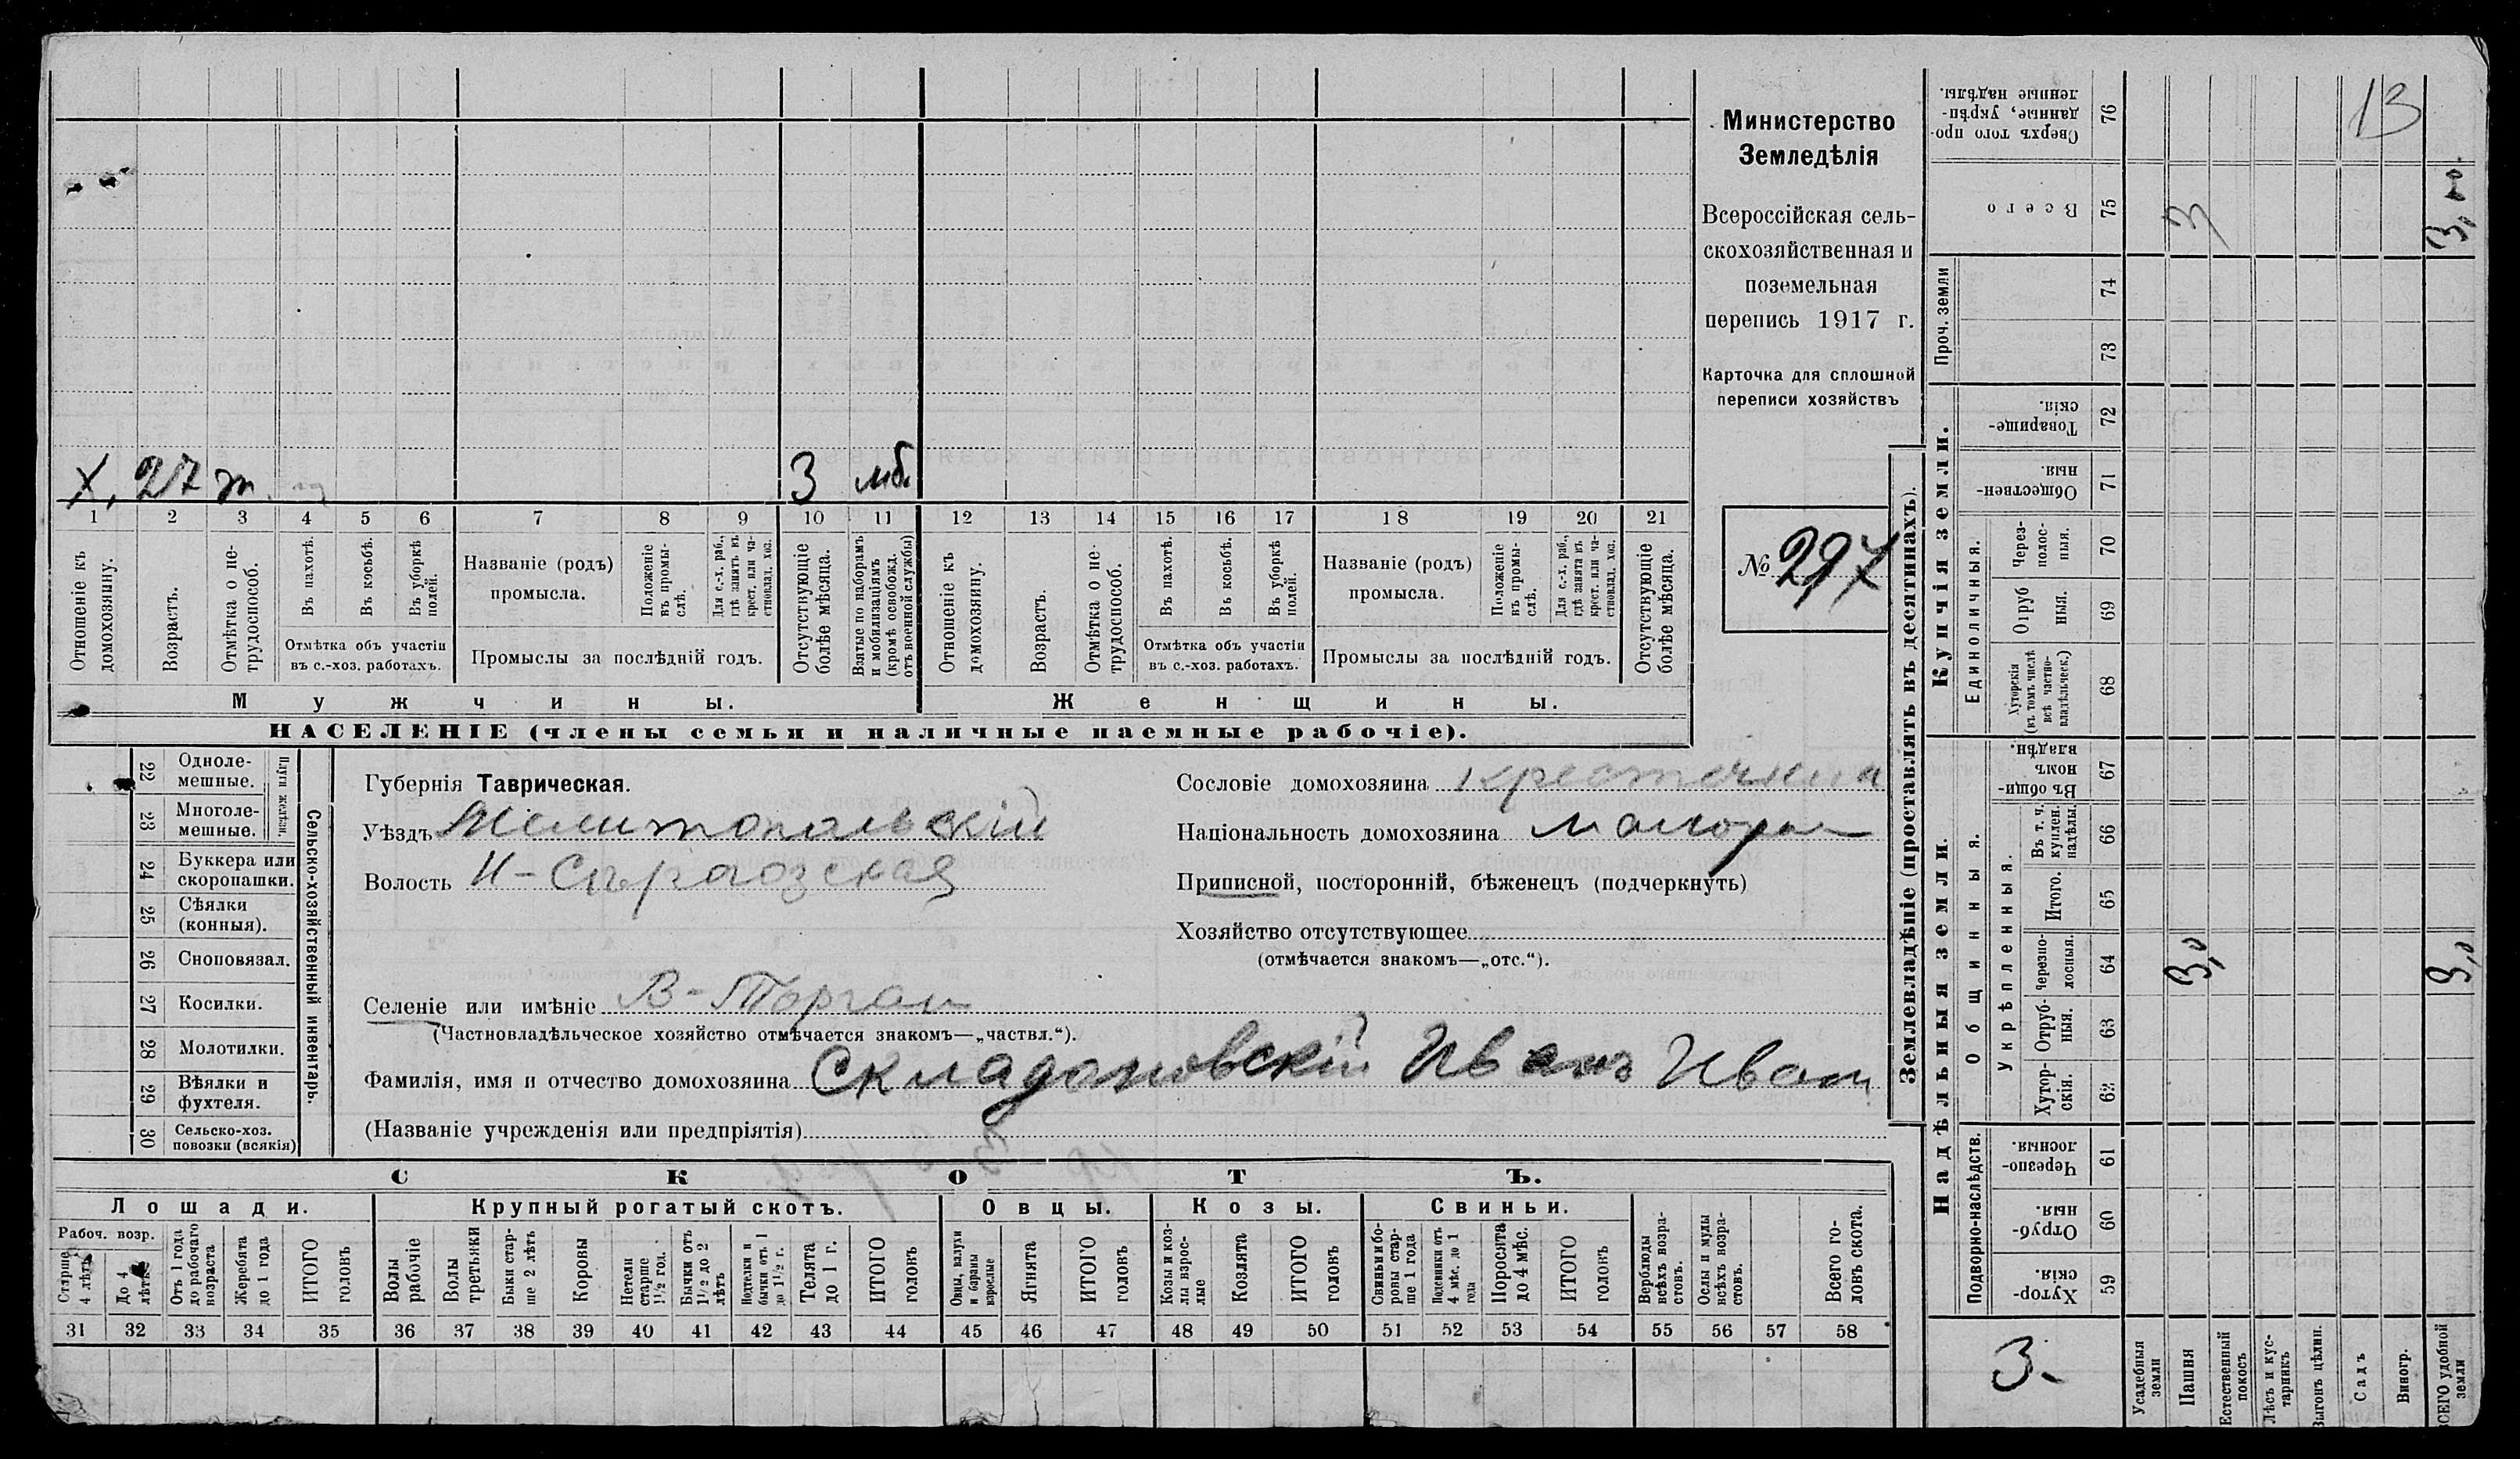 Х. 27 3 мб.
1 2 3 4 5 6 7 8 9 10 11 12 13 14 15 16 17 18 19 20 21
Отношеніе къ домохозяину.
Возрастъ.
Отмѣтка о не-трудоспособ.
Въ пахотѣ.
Въ косьбѣ.
Въ уборкѣ полей.
Отмѣтка объ участіи
въ с.-хоз. работахъ.
Названіе (родъ)
промысла.
Положеніе въ промы-слѣ.
Для с.-х. раб., гдѣ занятъ въ крест. или ча-стновлад. хоз.
Промыслы за послѣдній годъ.
Отсутствующіе болѣе мѣсяца.
Взятые по наборамъ и мобилизаціямъ (кромѣ освобожд. отъ военной службы)
Отношеніе къ домохозяину.
Возрастъ.
Отмѣтка о не-трудоспособ.
Въ пахотѣ.
Въ косьбѣ.
Въ уборкѣ полей.
Отмѣтка объ участіи
въ с.-хоз. работахъ.
Названіе (родъ)
промысла.
Положеніе въ промы-слѣ.
Для с.-х. раб., гдѣ занята въ крест. или ча-стновлад. хоз.
Промыслы за послѣдній годъ.
Отсутствующіе болѣе мѣсяца.
Мужчины. Женщины.
НАСЕЛЕНІЕ (члены семьи и наличные наемные рабочіе).
Министерство
Земледѣлія
Всероссійская сель-
скохозяйственная и
поземельная
перепись 1917 г.
Карточка для сплошной
переписи хозяйствъ
№ 297
22 Одноле-
мешные.
23 Многоле-
мешные.
Плуги желѣзн.
24 Буккера или
скоропашки.
25 Сѣялки
(конныя).
26 Сноповязал.
27 Косилки.
28 Молотилки.
29 Вѣялки и
фухтеля.
30 Сельско-хоз.
повозки (всякія)
Сельско-хозяйственный инвентарь.
Губернія Таврическая.
Уѣздъ Мелитопольскій
Волость Н-Сѣрогозская
Селеніе или имѣніе В-Торгаи
(Частновладѣльческое хозяйство отмѣчается знакомъ—„частвл.“).
Фамилія, имя и отчество домохозяина Складановскій Иванъ Иван
(Названіе учрежденія или предпріятія)
Сословіе домохозяина крестянинъ
Національность домохозяина малорос
Приписной, посторонній, бѣженецъ (подчеркнуть)
Хозяйство отсутствующее
(отмѣчается знакомъ—„отс.“).
СКОТЪ.
Лошади. Крупный рогатый скотъ. Овцы. Козы. Свиньи.
Рабоч. возр.
Старше 4 лѣтъ
До 4 лѣтъ
Отъ 1 года до рабочаго возраста
Жеребята до 1 года
ИТОГО головъ
Волы рабочіе
Волы третьяки
Быки стар-ше 2 лѣтъ
Коровы
Нетели старше 1½ год.
Бычки отъ 1½ до 2 лѣтъ
Подтелки и бычки отъ 1 до 1½ г.
Телята до 1 г.
ИТОГО головъ
Овцы, валухи и бараны взрослые
Ягнята
ИТОГО головъ
Козы и коз-лы взрос-лые
Козлята
ИТОГО головъ
Свиньи и бо-ровы стар-ше 1 года
Подсвинки отъ 4 мѣс. до 1 года
Поросята до 4 мѣс.
ИТОГО головъ
Верблюды всѣхъ возра-стовъ.
Ослы и мулы всѣхъ возра-стовъ.
Всего го-ловъ скота.
31 32 33 34 35 36 37 38 39 40 41 42 43 44 45 46 47 48 49 50 51 52 53 54 55 56 57 58
Землевладѣніе (проставлять въ десятинахъ).
Надѣльныя земли.
Купчія земли.
Проч. земли
Сверхъ того про-данные, укрѣп-ленные надѣлы. 76 13
Всего 75 3 3,0
74
73
Товарище-скія. 72
Обществен-ныя. 71
Единоличныя.
Через-полос-ныя. 70
Отруб ныя. 69
Хуторскія (въ томъ числѣ всѣ частно-владѣльческ.) 68
Общинныя.
Въ общи-номъ владѣн. 67
Укрѣпленныя.
Въ т. ч. куплен. надѣлы. 66
Итого. 65
Черезпо-лосныя. 64 3,0 3,0
Отруб-ныя. 63
Хутор-скія. 62
Подворно-наслѣдств.
Черезпо-лосныя 61
Отруб-ныя. 60
Хутор-скія. 59
3.
Усадебныя земли
Пашня
Естественный покосъ
Лѣсъ и кус-тарникъ
Выгонъ цѣлин.
Садъ
Виногр.
ВСЕГО удобной земли